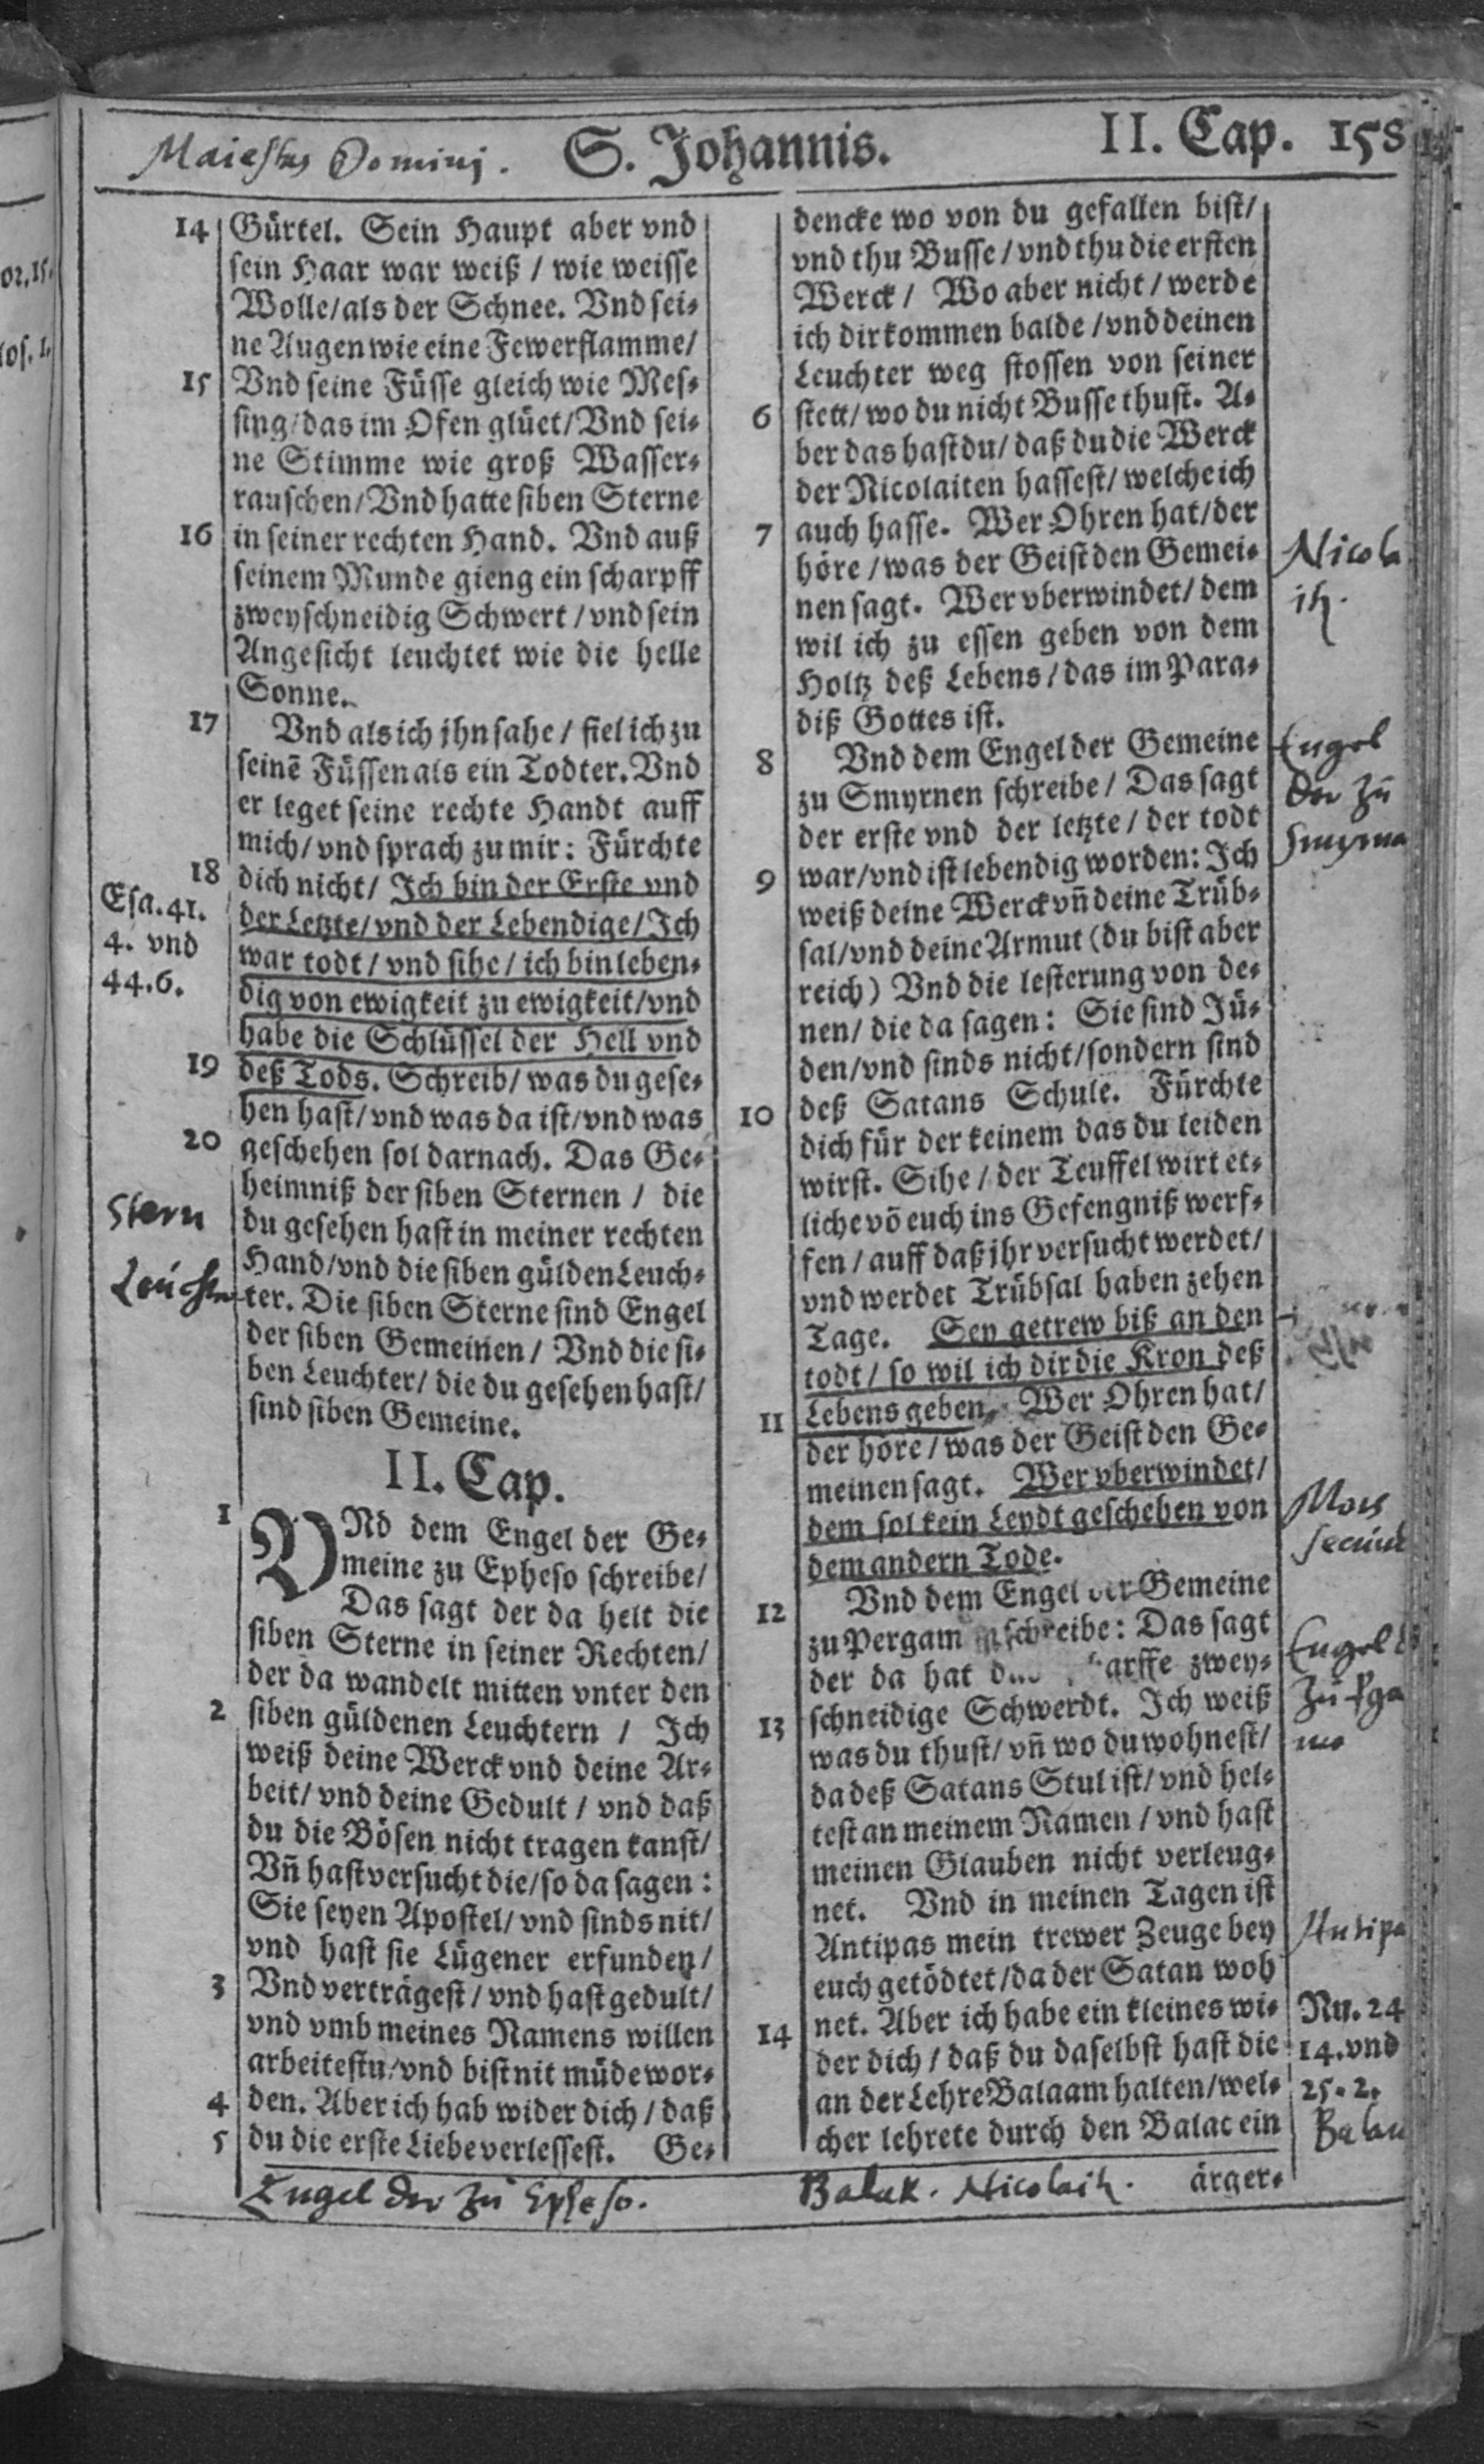 Maiestas Domini. S. Johannis. II. Cap. 158
14 Gürtel. Sein Haupt aber vnd
sein Haar war weiß / wie weisse
Wolle/als der Schnee. Vnd sei-
ne Augen wie eine Fewerflamme/
15 Vnd seine Füsse gleich wie Mes-
sing/das im Ofen glüet/Vnd sei-
ne Stimme wie groß Wasser-
rauschen/Vnd hatte siben Sterne
16 in seiner rechten Hand. Vnd auß
seinem Munde gieng ein scharpff
zweyschneidig Schwert/vnd sein
Angesicht leuchtet wie die helle
Sonne.
17 Vnd als ich jhn sahe / fiel ich zu
seinē Füssen als ein Todter. Vnd
er leget seine rechte Handt auff
mich/vnd sprach zu mir: Fürchte
18 dich nicht/ Ich bin der Erste vnd
Esa.41.
der Letzte/vnd der Lebendige/Ich
4. vnd
war todt/vnd sihe/ich bin leben-
44.6.
dig von ewigkeit zu ewigkeit/vnd
habe die Schlüssel der Hell vnd
19 deß Tods. Schreib/was du gese-
hen hast/vnd was da ist/vnd was
20 geschehen sol darnach. Das Ge-
heimniß der siben Sternen / die
Stern
du gesehen hast in meiner rechten
Hand/vnd die siben gülden Leuch-
Leuchter
ter. Die siben Sterne sind Engel
der siben Gemeinen / Vnd die si-
ben Leuchter/ die du gesehen hast/
sind siben Gemeine.
II. Cap.
1 VNd dem Engel der Ge-
meine zu Epheso schreibe/
Das sagt der da helt die
siben Sterne in seiner Rechten/
der da wandelt mitten vnter den
2 siben güldenen Leuchtern / Ich
weiß deine Werck vnd deine Ar-
beit/ vnd deine Gedult / vnd daß
du die Bösen nicht tragen kanst/
Vñ hast versucht die/so da sagen:
Sie seyen Apostel/ vnd sinds nit/
vnd hast sie Lügener erfunden/
3 Vnd verträgest/ vnd hast gedult/
vnd vmb meines Namens willen
arbeitestu/vnd bist nit müde wor-
4 den. Aber ich hab wider dich/daß
5 du die erste Liebe verlessest. Ge-
Engel der zu Epheso.
dencke wo von du gefallen bist/
vnd thu Busse/vnd thu die ersten
Werck/ Wo aber nicht/werde
ich dir kommen balde/vnd deinen
Leuchter weg stossen von seiner
6 stett/wo du nicht Busse thust. A-
ber das hastdu/ daß du die Werck
der Nicolaiten hassest/ welche ich
7 auch hasse. Wer Ohren hat/der
höre/was der Geist den Gemei-
Nicola
nen sagt. Wer vberwindet/ dem
it.
wil ich zu essen geben von dem
Holtz deß Lebens/das im Para-
diß Gottes ist.
8 Vnd dem Engel der Gemeine
Engel
zu Smyrnen schreibe/ Das sagt
der zu
der erste vnd der letzte/ der todt
Smyrna
9 war/vnd ist lebendig worden: Ich
weiß deine Werck vñ deine Trüb-
sal/vnd deine Armut (du bist aber
reich) Vnd die lesterung von de-
nen/ die da sagen: Sie sind Jü-
den/vnd sinds nicht/sondern sind
10 deß Satans Schule. Fürchte
dich für der keinem das du leiden
wirst. Sihe/ der Teuffel wirt et-
liche vō euch ins Gefengniß werf-
fen/auff daß jhr versucht werdet/
vnd werdet Trübsal haben zehen
Tage. Sey getrew biß an den
todt/ so wil ich dir die Kron deß
11 Lebens geben. Wer Ohren hat/
der höre/was der Geist den Ge-
meinen sagt. Wer vberwindet/
dem sol kein Leydt geschehen von
Mors
dem andern Tode.
secund
12 Vnd dem Engel der Gemeine
zu Pergam schreibe: Das sagt
Engel
der da hat scharffe zwey-
schneidige Schwerdt. Ich weiß
13 was du thust/ vñ wo du wohnest/
da deß Satans Stul ist/ vnd hel-
test an meinem Namen / vnd hast
meinen Glauben nicht verleug-
net. Vnd in meinen Tagen ist
Antipas mein trewer Zeuge bey
Antipa
euch getödtet/da der Satan woh
14 net. Aber ich habe ein kleines wi-
Nu. 24
der dich / daß du daselbst hast die
14. vnd
an der Lehre Balaam halten/wel-
25. 2.
cher lehrete durch den Balac ein
Balaa
Balak. Nicolait. ärger-